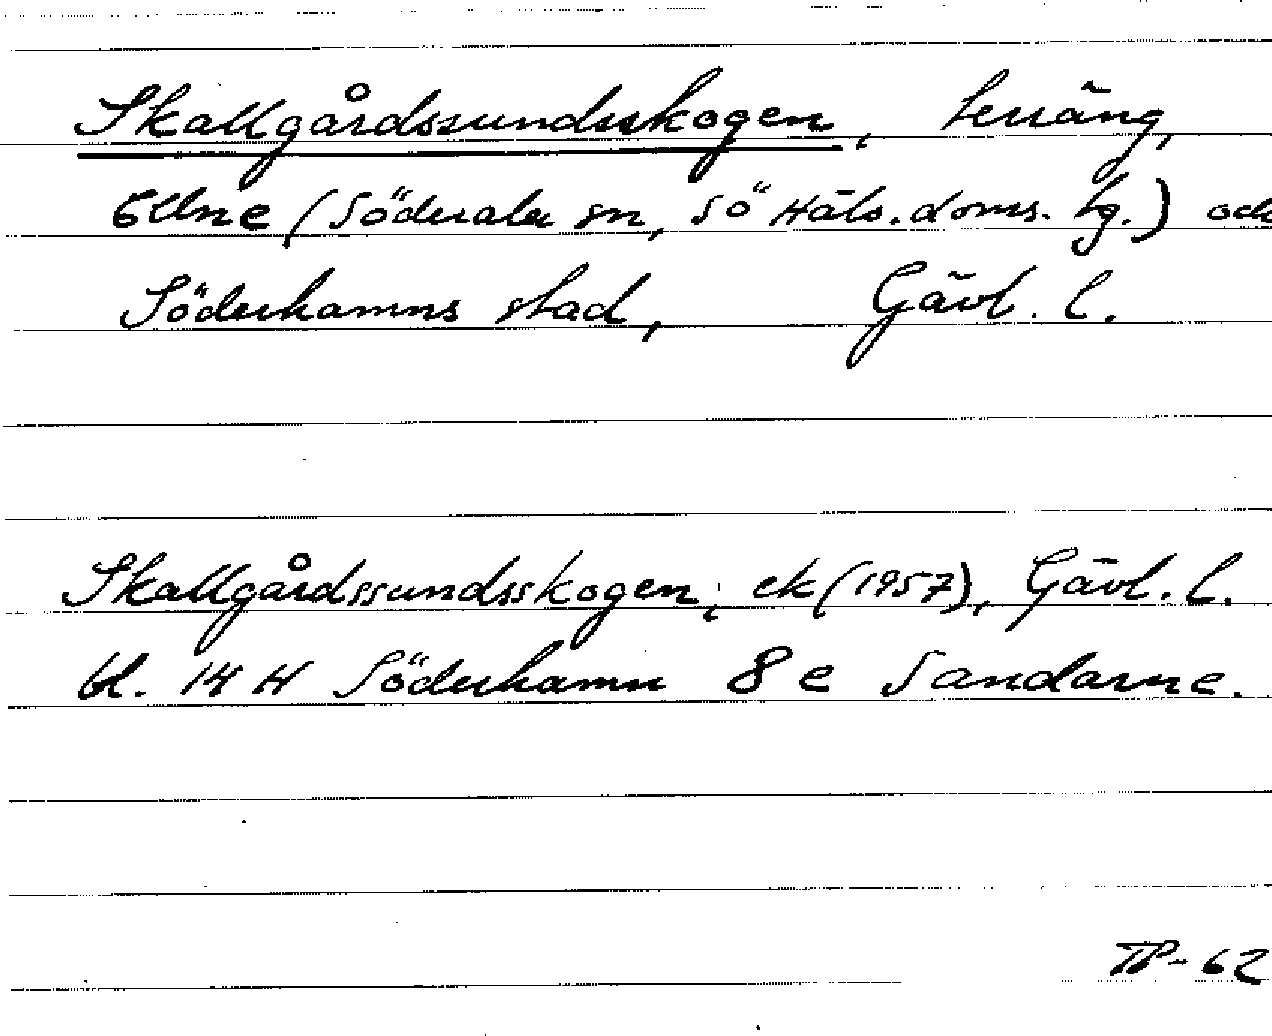 Skallgårdssundsskogen, terräng,
Ellne (Söderala sn, Sö Häls. doms. tg.) och
Söderhamns stad, Gävl. l.
Skallgårdssundsskogen; ek (1957), Gävl. l.
bl. 14 H Söderhamn 8 e Sandarne.
TP-62